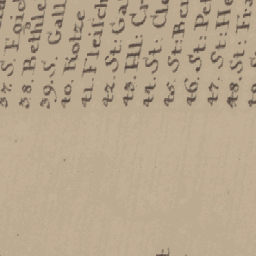 37. S.
38. Bethle
39. S. Gall
40. Kotze
41. Fleisch
42. St: Ga
43. Hl: Cr
44. St. Cle
45. St:
46. St: Pet
47. St: He
48. St: Fra